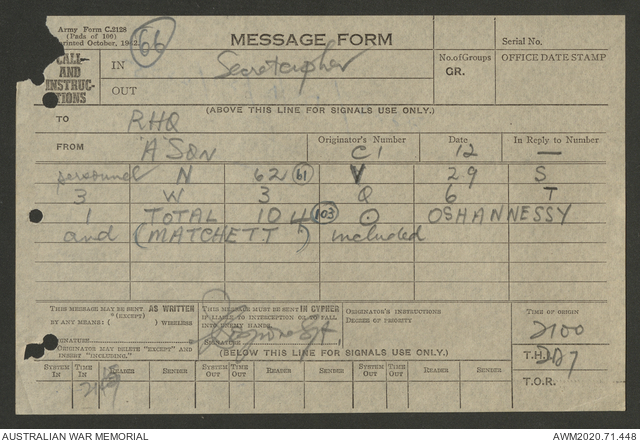 Army Form C.2128
(Pads of 100)
Reprinted October, 1942.
66
MESSAGE FORM
Serial No.
CALL-AND INSTRUCTIONS
IN
Secretcypher
No. of Groups
GR.
OFFICE DATE STAMP
OUT
(ABOVE THIS LINE FOR SIGNALS USE ONLY.)
TO
RHQ
FROM
'A' SQN
Originator's Number
C1
Date
12
In Reply to Number
—
personnel N 62 61 V 29 S
3 W 3 Q 6 T
1 TOTAL 104 103 O OSHANNESSY
and (MATCHETT) included
THIS MESSAGE MAY BE SENT AS WRITTEN
(EXCEPT)
BY ANY MEANS: ( ) WIRELESS
SIGNATURE
ORIGINATOR MAY DELETE "EXCEPT" AND
INSERT "INCLUDING."
THIS MESSAGE MUST BE SENT IN CYPHER
IF LIABLE TO INTERCEPTION OR TO FALL
INTO ENEMY HANDS.
SIGNATURE
ORIGINATOR'S INSTRUCTIONS
DEGREE OF PRIORITY
TIME OF ORIGIN
2100
(BELOW THIS LINE FOR SIGNALS USE ONLY.)
T.H.I.
SYSTEM IN
TIME IN
READER
SENDER
SYSTEM OUT
TIME OUT
READER
SENDER
SYSTEM OUT
TIME OUT
READER
SENDER
T.O.R.
AUSTRALIAN WAR MEMORIAL
AWM2020.71.448